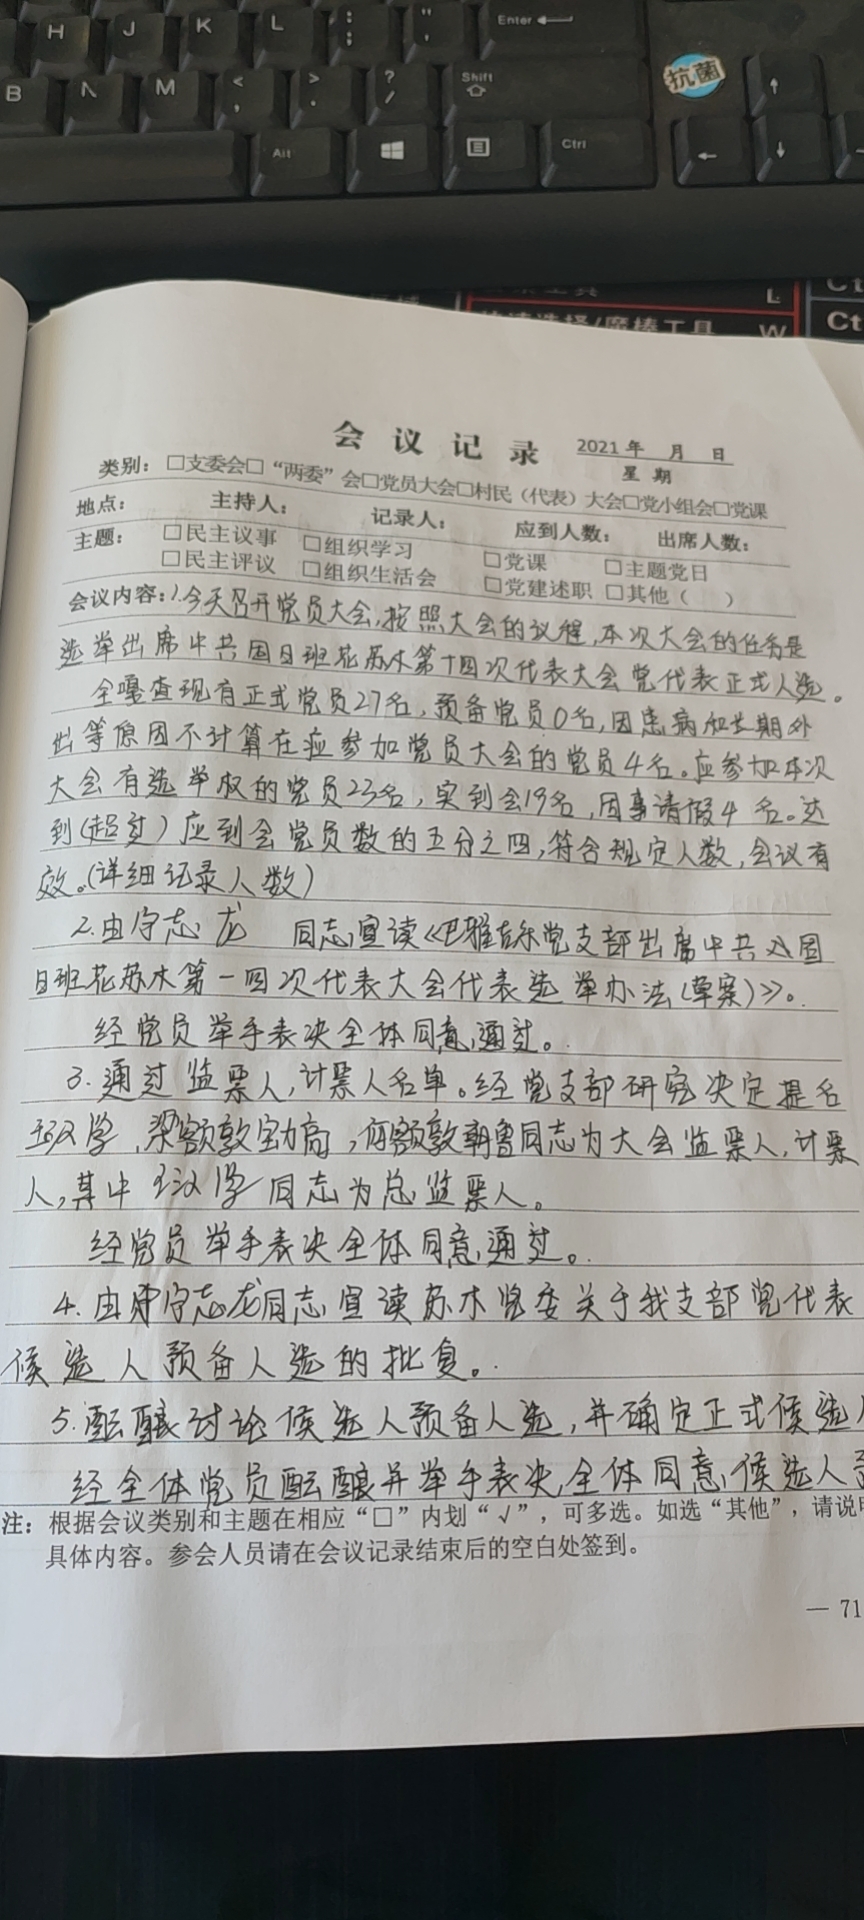 H J K L : ; " ' Enter
B N M < , > . ? / Shift 抗菌 ↑
Alt Ctrl ← ↓
L Ct
快速选择/魔棒工具 W Ct
会 议 记 录 2021年 月 日
星 期
类别：□支委会□“两委”会□党员大会□村民（代表）大会□党小组会□党课
地点： 主持人： 记录人： 应到人数： 出席人数：
主题： □民主议事 □组织学习 □党课 □主题党日
□民主评议 □组织生活会 □党建述职 □其他（ ）
会议内容：1.今天召开党员大会,按照大会的议程,本次大会的任务是
选举出席中共固日班花苏木第十四次代表大会党代表正式人选。
全嘎查现有正式党员27名，预备党员0名，因患病和长期外
出等原因不计算在应参加党员大会的党员4名。应参加本次
大会有选举权的党员23名，实到会19名，因事请假4名。达
到(超过）应到会党员数的五分之四,符合规定人数,会议有
效。(详细记录人数)
2.由守志龙 同志宣读《巴雅吉乐党支部出席中共固
日班花苏木第一四次代表大会代表选举办法(草案)》。
经党员举手表决全体同意,通过。
3.通过监票人,计票人名单。经党支部研究决定提名
学,梁额敦宝力高,何额敦朝鲁同志为大会监票人,计票
人,其中 王汉学 同志为总监票人。
经党员举手表决全体同意,通过。
4.由守志龙同志宣读苏木党委关于我支部党代表
候选人预备人选的批复。
5.酝酿讨论候选人预备人选,并确定正式候选人
经全体党员酝酿并举手表决,全体同意,候选人预
注：根据会议类别和主题在相应“□”内划“√”，可多选。如选“其他”，请说明
具体内容。参会人员请在会议记录结束后的空白处签到。
— 71